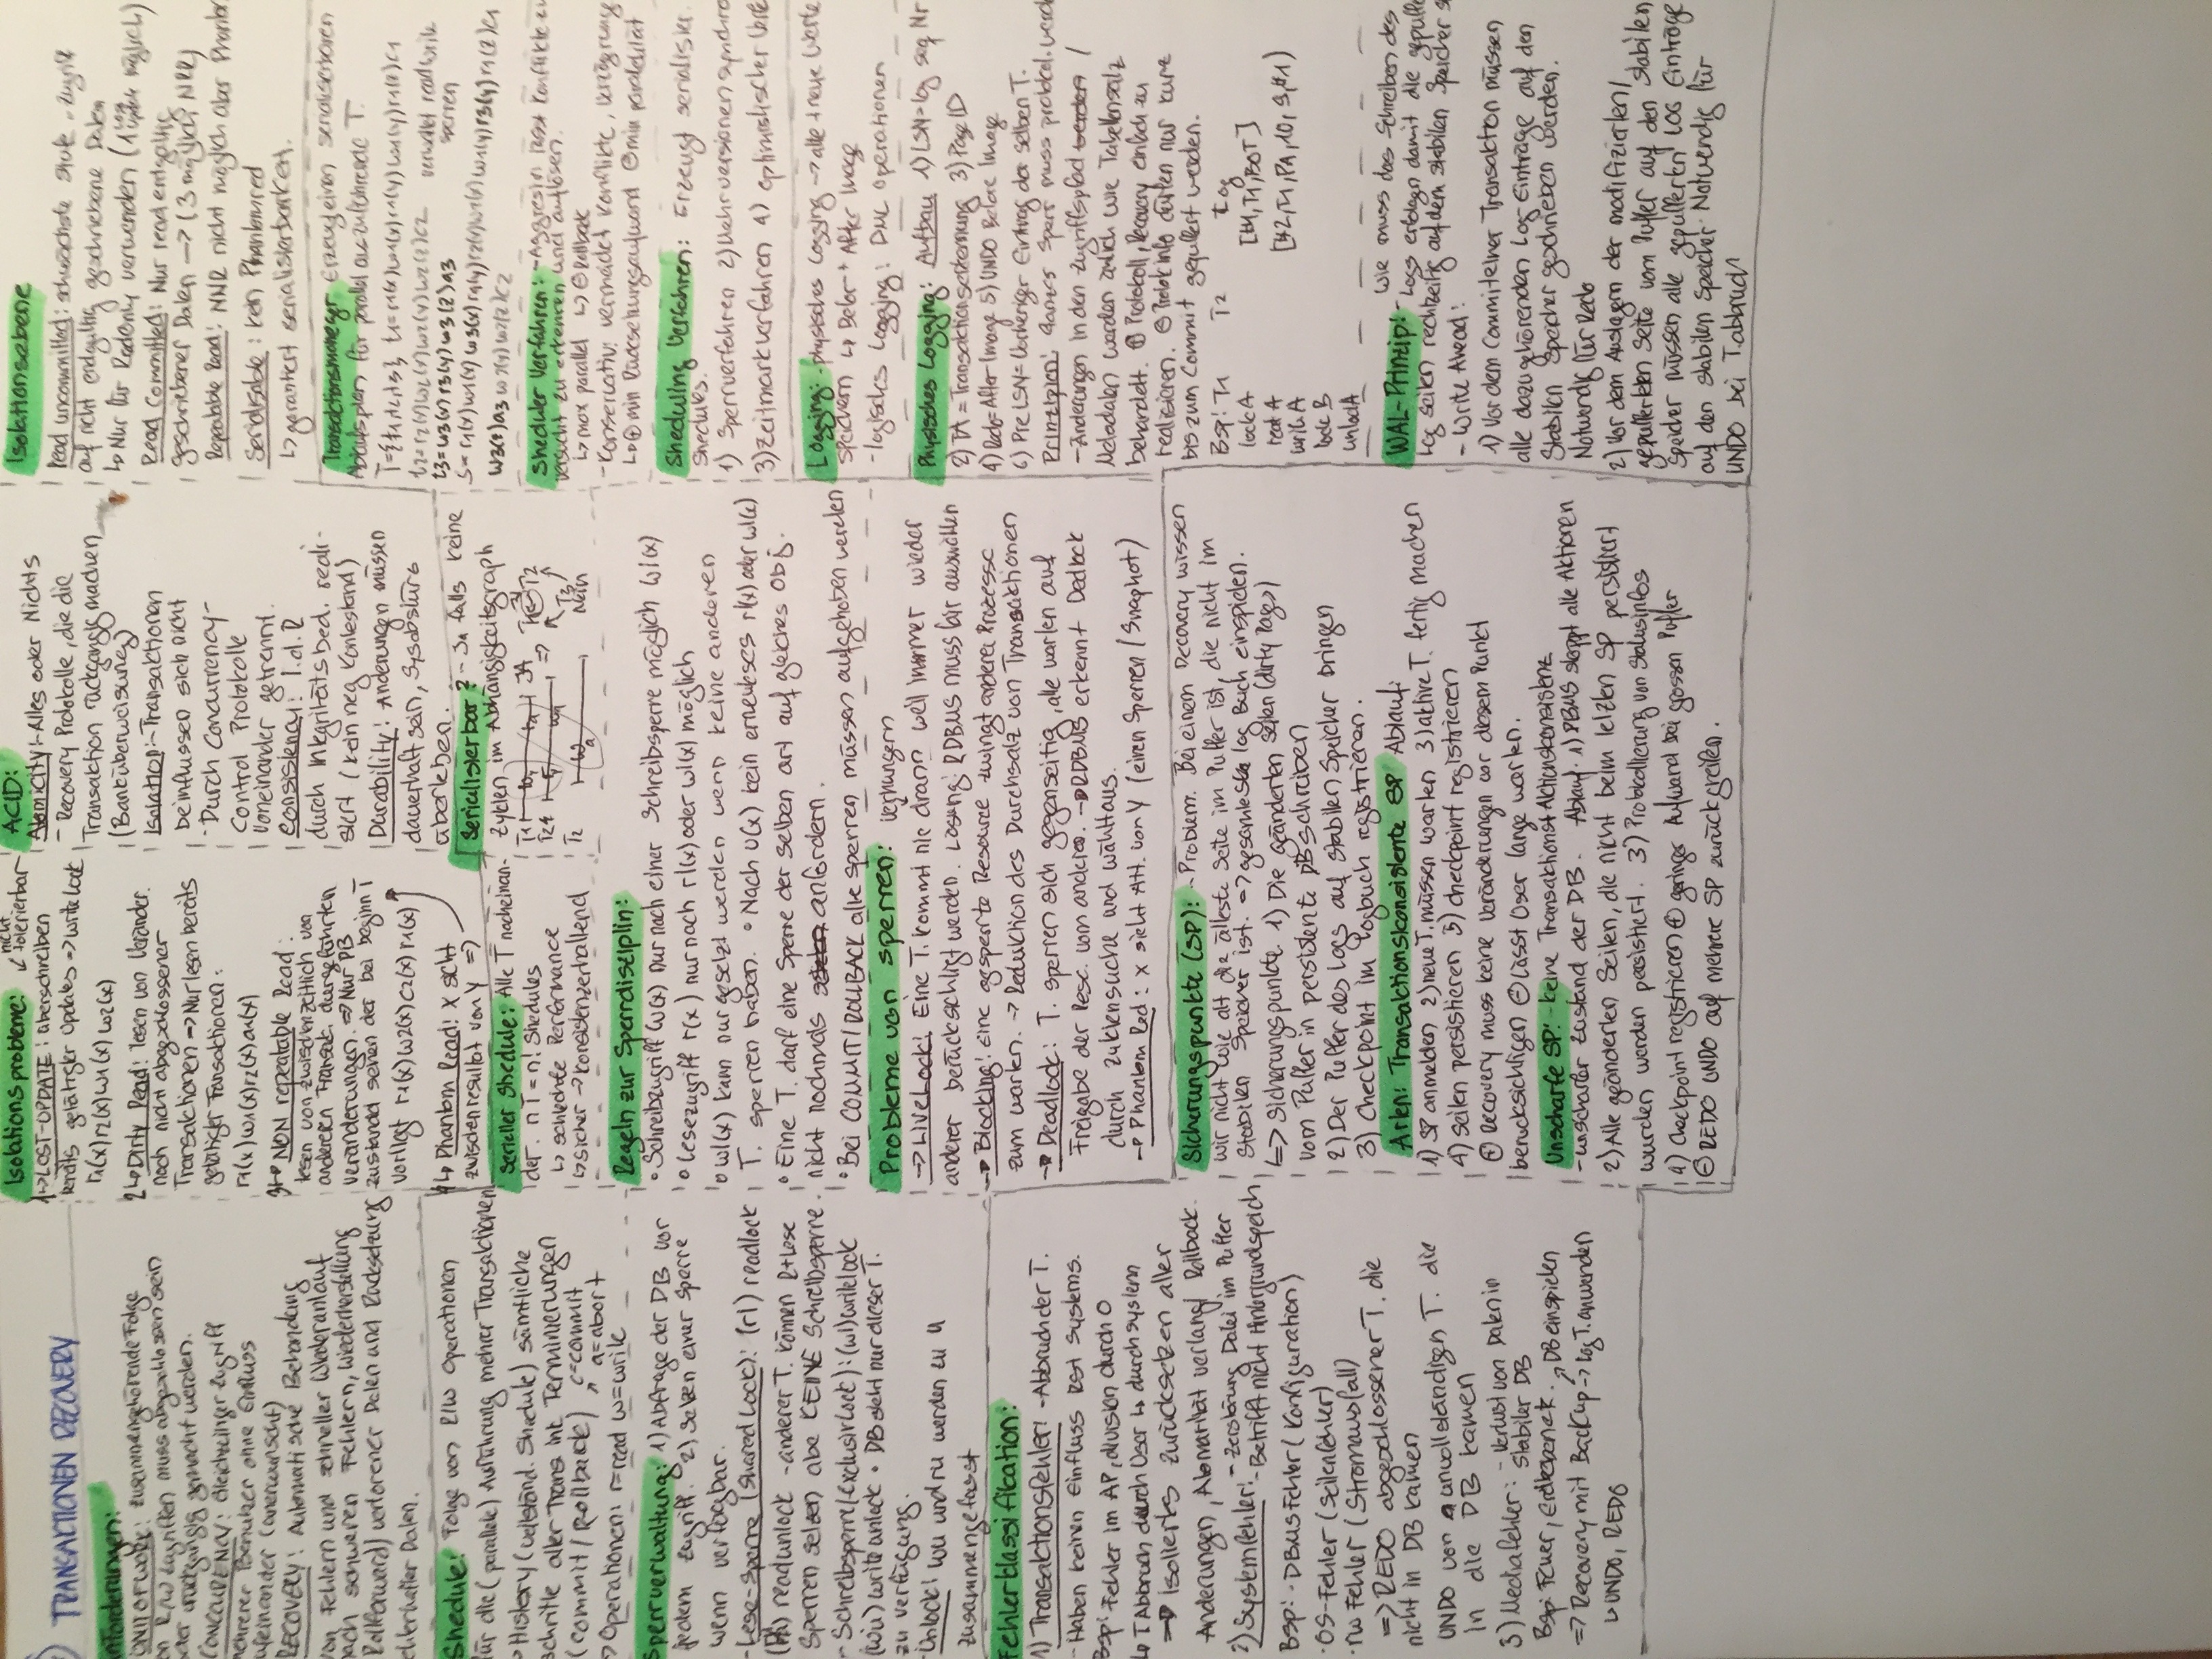 TRANSAKTIONEN RECOVERY
nforderungen:
UNIT OF WORK: zusammengehörende Folge
on R/W zugriffen muss abgeschlossen sein
oder rückgängig gemacht werden.
CONCURENCY: Gleichzeitiger zugriff
mehrerer Benutzer ohne Einfluss
ufeinander (unerwünscht)
RECOVERY: Automatische Behandung
von Fehlern und schneller Wiederanlauf
nach schweren Fehlern, Wiederherstellung
Rollforward) verlorener Daten und Rücksetzung
ehlerhafter Daten.
Shedule: Folge von R/W Operationen
für die (parallele) Ausführung mehrer Transaktionen
> History (vollständ. Shedule) sämtliche
schritte aller Trans ink Terminierungen
(commit / Rollback) c=commit
a=abort
> Operationen: r=read w=write
Sperrverwaltung: 1) Abfrage der DB vor
jedem zugriff. 2) Setzen einer Sperre
wenn verfügbar.
- Lese-Sperre (Shared Lock): (rl) readlock
readunlock - anderer T. können R+Lese
Sperren setzen abe KEINE Schreibsperre.
- Schreibsperre (-Exclusiv Lock): (wl) writelock
(wu) write unlock • DB steht nur dieser T.
zu verfügung.
- Unlock: wu und ru werden zu u
zusammengefasst
Fehlerklassifikation:
1) Transaktionsfehler: - Abbruch der T.
- Haben keinen Einfluss Rest Systems.
Bsp: Fehler im AP, division durch 0
↳ T Abbruch durch User ↳ durch system
=> Isoliertes zurücksetzen aller
Änderungen, Atomarität verlangt Rollback.
2) Systemfehler: - Zerstörung Datei im Puffer
- Betrifft nicht Hintergrundspeich
Bsp: · DBMS Fehler (Konfiguration)
· OS-Fehler (Seitenfehler)
· HW Fehler (Stromausfall)
=> REDO abgeschlossener T. die
nicht in DB kamen
UNDO von unvollständigen T. die
in die DB kamen
3) Mediafehler: - Verlust von Daten in
Stabiler DB
Bsp: Feuer, Erdbeben etc. ↗ DB einspielen
=> Recovery mit Backup -> Log T. anwenden
↳ UNDO, REDO
Isolationsprobleme: ↙ nicht tolerierbar
1 ↳ LOST-UPDATE: überschreiben
bereits getätigter Updates => Write Lock
r1(x) r2(x) w1(x) w2(x)
2 ↳ Dirty Read: lesen von Veränder.
noch nicht abgeschlossener
Transaktionen => Nur lesen bereits
getätigter Transaktionen:
r1(x) w1(x) r2(x) a1(x)
3 ↳ NON repeatable Read:
lesen von zwischenzeitlich von
anderen Transak. durgeführten
veränderungen. => Nur DB
zustandd sehen der bei beginn T
vorliegt r1(x) w2(x) c2(x) r1(x)
4 ↳ Phantom Read: x sieht
zwischenresultat von Y =>
Serieller Shedule: Alle T nacheinan-
der. nT = n! Shedules
↳ schlechte Performance
↳ sicher -> Konsistenzerhaltend
ACID:
Atomicity: - Alles oder Nichts
- Recovery Protokolle, die die
Transaktion rückgängig machen
(Banküberweisung)
Isolation: - Transaktionen
beinflussen sich nicht
- Durch Concurrency-
Control Protokolle
voneinander getrennt.
Consistency: I.d.R
durch Integritätsbed. reali-
siert (kein neg Kontostand)
Durability: Änderungen müssen
dauerhaft sein, Sysabstürs
überleben.
Serialisierbar? - Ja falls keine
Zyklen im Abhängigkeitsgraph
T1
JA => T1 T2
T2
T3
Nein
Regeln zur Sperrdisziplin:
• Schreibzugriff (w(x) nur nach einer Schreibsperre möglich wl(x)
• Lesezugriff r(x) nur nach rl(x) oder wl(x) möglich
• wl(x) kann nur gesetzt werden wenn keine anderen
T. sperren haben. • Nach u(x) kein erneutes rl(x) oder wl(x)
• Eine T. darf eine Sperre der selben art auf gleiches Obj.
nicht nochmals anfordern.
• Bei COMMIT/ROLLBACK alle sperren müssen aufgehoben werden
Probleme von sperren: verhungern
-> LiveLock: Eine T. kommt nie drann weil immer wieder
anderer berücksichtigt werden. Lösung: RDBMS muss fair auswählen
-> Blocking: Eine gesperrte Resource zwingt anderer Prozesse
zum warten. -> Reduktion des Durchsatz von Transaktionen
-> Deadlock: T. sperren sich gegenseitig, alle warten auf
Freigabe der Resc. vom anderen. -> RDBMS erkennt Dedlock
durch zyklensuche und wählt aus.
-> Phantom Red: x sieht Att. von Y (einen Sperren / Snaphot)
Sicherungspunkte (SP): - Problem. Bei einem Recovery wissen
wir nicht wie alt die älteste Seite im Puffer ist, die nicht im
Stabilen Speicher ist. => gesamtes Log Buch einspielen.
↳ Sicherungspunkte. 1) Die geänderten Seiten (dirty Pages)
vom Puffer in persistente DB schreiben
2) Der Puffer des Logs auf stabilen Speicher bringen
3) Checkpoint im Logbuch registrieren.
Arten: Transaktionskonsistente SP Ablauf:
1) SP anmelden 2) neue T. müssen warten 3) aktive T. fertig machen
4) Seiten persistieren 5) checkpoint registrieren
⊕ Recovery muss keine Veränderungen vor diesem Punkt
berücksichtigen ⊖ lässt User lange warten.
Unscharfe SP: - Keine Transaktionst Aktionskonsistenz
- unscharfer Zustand der DB. Ablauf. 1) DBMS stoppt alle Aktionen
2) Alle geänderten Seiten, die nicht beim letzten SP persistiert
wurden werden persistiert. 3) Protokollierung von Statusinfos
4) Checkpoint registrieren ⊕ geringer Aufwand bei grossen Puffer
⊖ REDO UNDO auf mehrere SP zurückgreifen.
Isolationsebene
Read uncommitted: schwächste Stufe - Zugriff
auf nicht endgültig geschriebene Daten
↳ Nur für Redonly verwenden (1 Log Update möglich)
Read Committed: Nur read endgültig
geschriebener Daten -> (3 möglich NRR)
Repeatable Read: NNR nicht möglich aber Phantom
Serialisable: kein Phantomred
↳ garantiert serialisierbarkeit.
Transaktionsmanager Erzeugt einen serialisierbaren
Ablaufsplan für parallel auszuführende T.
verwaltet read write
sperren
t3= w3(x) r3(y) w3(z) a3
w3(z) a3 w2(y) w2(z) c2
Sheduler Verfahren: - Aggresiv: lässt Konflikte zu
versucht zu erkennen und auflösen.
↳ max parallel ↳ ⊖ Rollback
- Konservativ: vermeidet Konflikte, Verzögerung
↳ ⊕ min Rücksetzungsaufwand ⊖ min paralelität
Sheduling Verfahren: Erzeugt serialisier.
Shedules.
1) Sperrverfahren 2) Mehrversionen synchro
3) Zeitmarkverfahren 4) optimistischer Verfa
Logging: - physisches Logging -> alte + neue Werte
speichern ↳ Befor + After Image
- logisches Logging: DML Operationen
Physisches Logging: Aufbau 1) LSN = log seq Nr
2) TA = Transaktionserkennung 3) Page ID
4) Redo = After Image 5) UNDO Before Image
6) Pre LSN = Vorheriger Eintrag der selben T.
Prinzipien: Ganzes Sperr muss protokol. werd
- Änderungen in den Zugriffspfad werden /
Metadaten werden änlich wie Tabellensatz
behandelt. ⊕ Protokoll, Recovery einfach zu
realisieren. ⊖ Protok info dürfen nur kurz
bis zum Commit gepuffert werden.
Bsp: T1 T2 Log
lock A [#1, T1, BOT]
read A [#2, T1, PA, 10, 9, #1)
write A
lock B
unlock A
WAL-Prinzip: - Wie muss das Schreiben des
Logs erfolgen damit die gepuffe
Log seiten rechtzeitig auf dem stabilen Speicher s
- Write Ahead:
1) Vor dem Commit einer Transaktion müssen
alle dazugehörenden Log-Einträge auf den
Stabilen Speicher geschrieben werden.
Notwendig für Redo
2) Vor dem Auslagern der modifizierten/
gepufferten Seite vom Puffer auf den stabilen
Speicher müssen alle gepufferten LOG Einträge
auf den stabilen Speicher. Notwendig für
UNDO bei T.abbruch